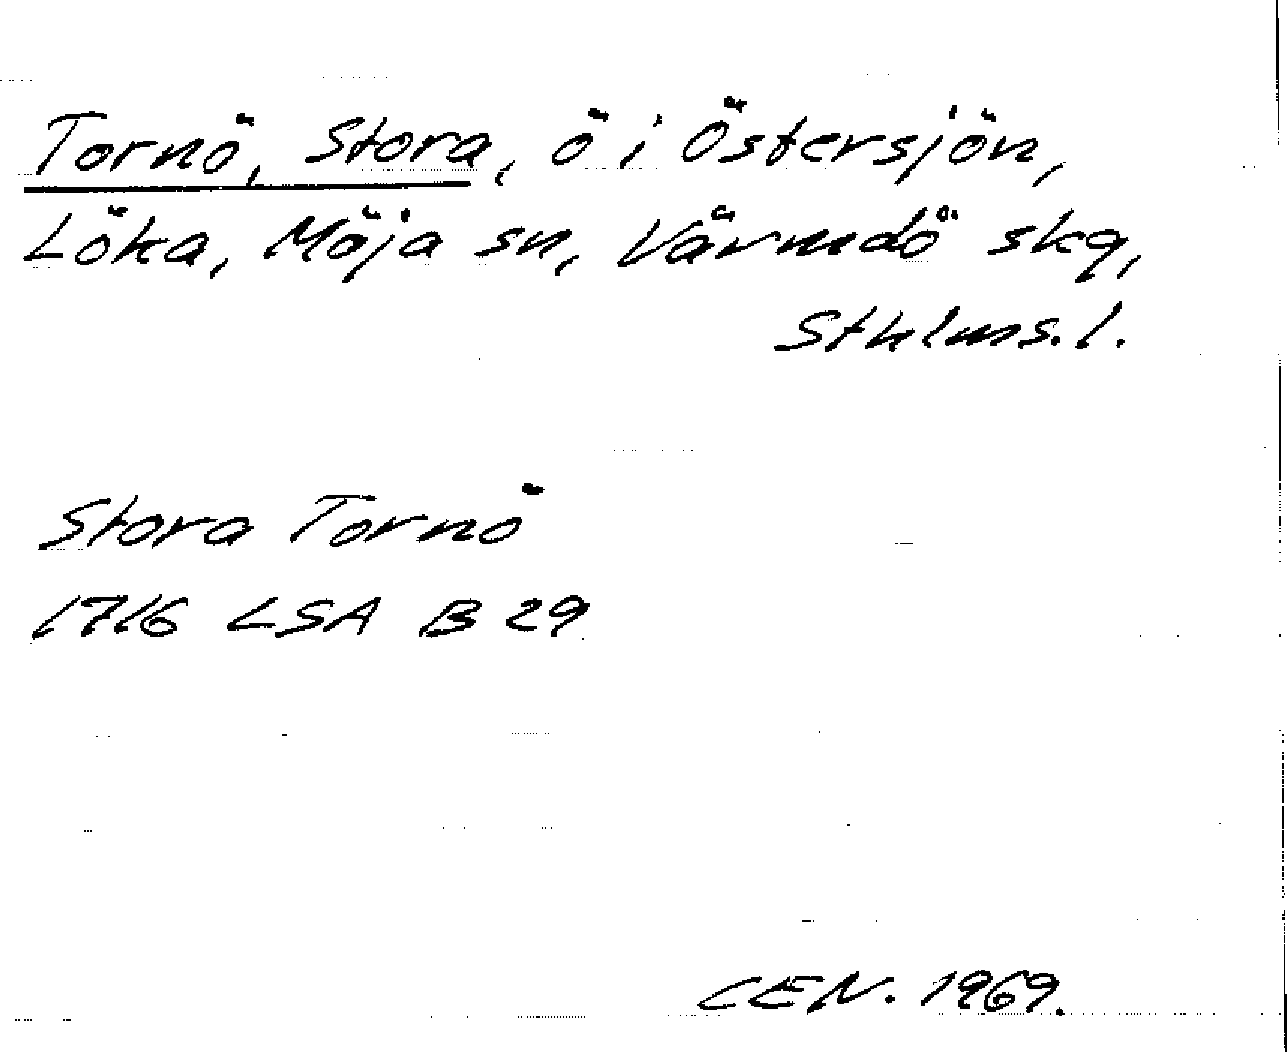 Tornö, Stora, ö i Östersjön,
Löka, Möja sn, Värmdö skg,
Sthlms.l.
Stora Tornö
1716 LSA B 29
CEN. 1969.